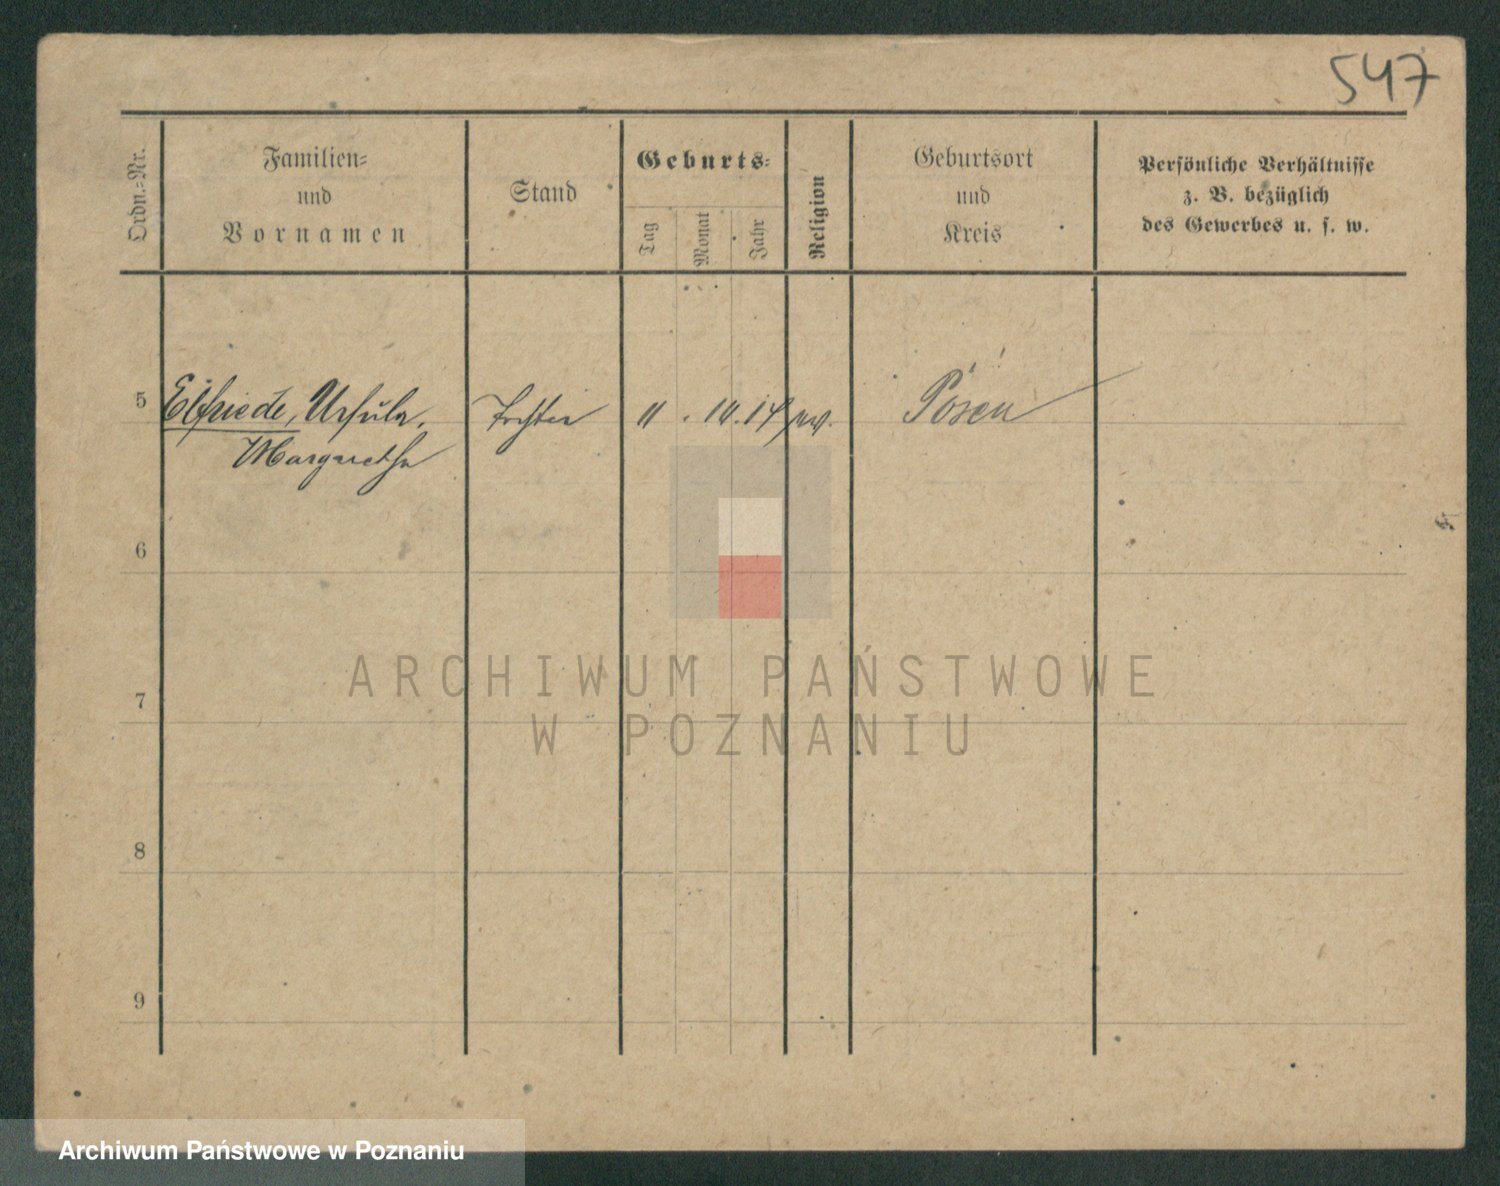 547
Ordn.-Nr.
Familien-
und
Vornamen
Stand
Geburts-
Tag
Monat
Jahr
Religion
Geburtsort
und
Kreis
Persönliche Verhältnisse
z. B. bezüglich
des Gewerbes u. s. w.
5 Elfriede, Ursula, Tochter 11. 10. 14 ev. Posen
Margarethe
6
7
8
9
ARCHIWUM PAŃSTWOWE
W POZNANIU
Archiwum Państwowe w Poznaniu